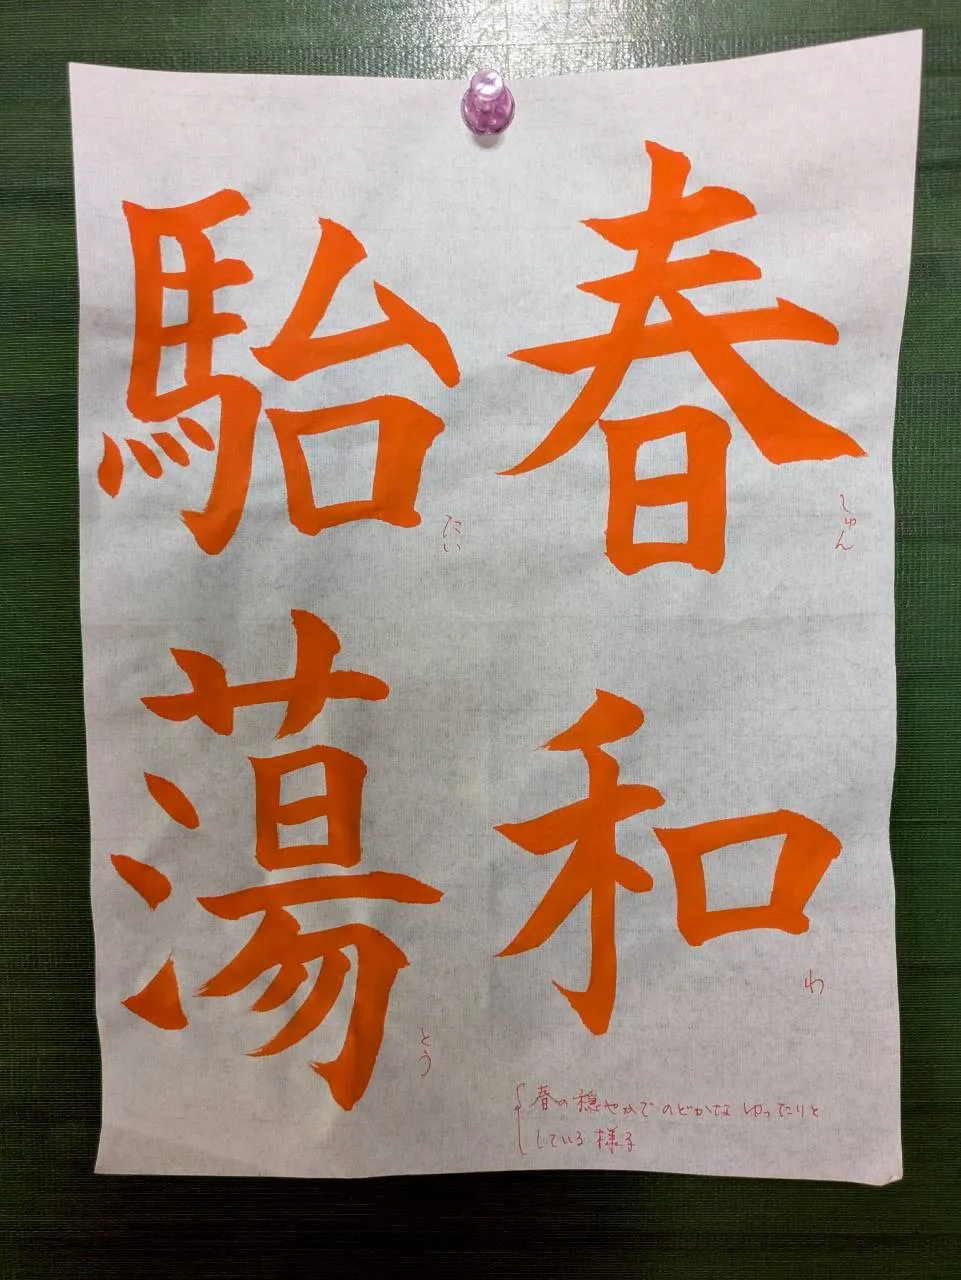 春和
しゅん
わ
駘蕩
たい
とう
春の穏やかでのどかな ゆったりと
している様子